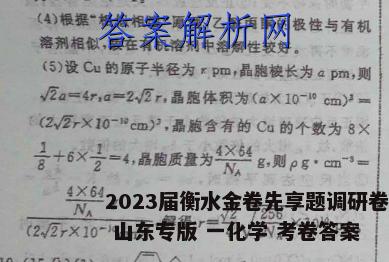 (4)根据“
极性与有机
答案解析网
溶剂相似,
(5)设 Cu 的原子半径为 r pm,晶胞棱长为 a pm,则
√2a=4r,a=2√2r,晶胞体积为(a×10⁻¹⁰ cm)³=
(2√2r×10⁻¹⁰cm)³,晶胞含有的 Cu 的个数为 8×
1/8+6×1/2=4,晶胞质量为 4×64/N_A g,则 ρ g·cm⁻³=
4×64/N_A
2023届衡水金卷先享题调研卷
(2√2r×10⁻
山东专版 一化学 考卷答案